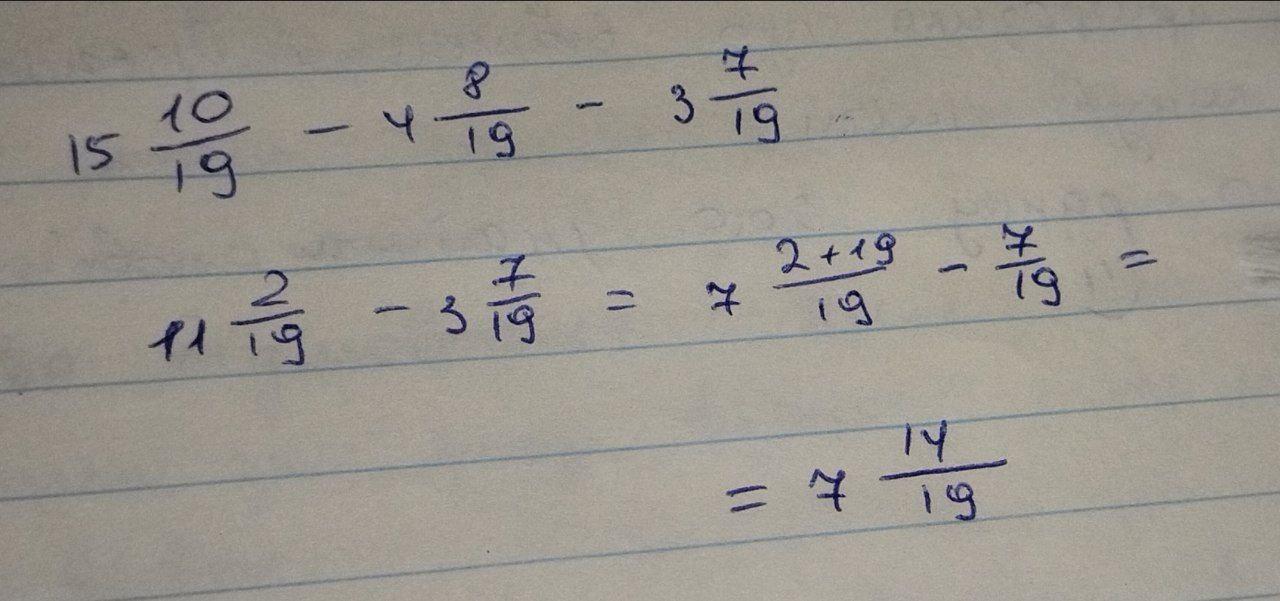 15 10/19 - 4 8/19 - 3 7/19
11 2/19 - 3 7/19 = 7 2+19/19 - 7/19 =
= 7 14/19